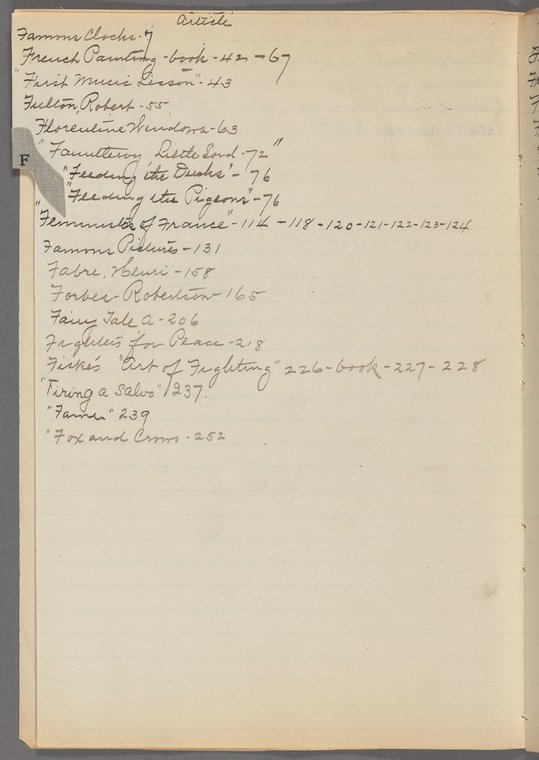 Article
Famous Clocks-7
French Painting-book-42-67
"First Music Lesson"-43
Fulton, Robert-55
Florentine Windows-63
F
"Fauntleroy, Little Lord-72"
"Feeding the Ducks"-76
"Feeding the Pigeons"-76
"Feminists of France"-114-118-120-121-122-123-124
Famous Pictures-131
Fabre, Henri-158
Forbes-Robertson-165
Fairy Tale A-206
Fighters for Peace-218
Fiske's "Art of Fighting" 226-book-227-228
"Firing a Salvo" 237.
"Fame" 239
"Fox and Crows-252